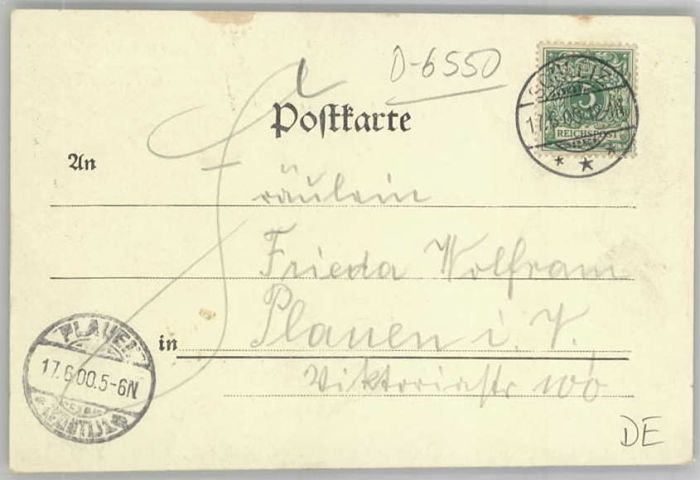 D-6550
Postkarte
5
REICHSPOST
17.6.00
An
Fräulein
Frieda Wolfram
in Plauen i. V.
Viktoriastr 100
PLAUEN
17.6.00.5-6N.
DE